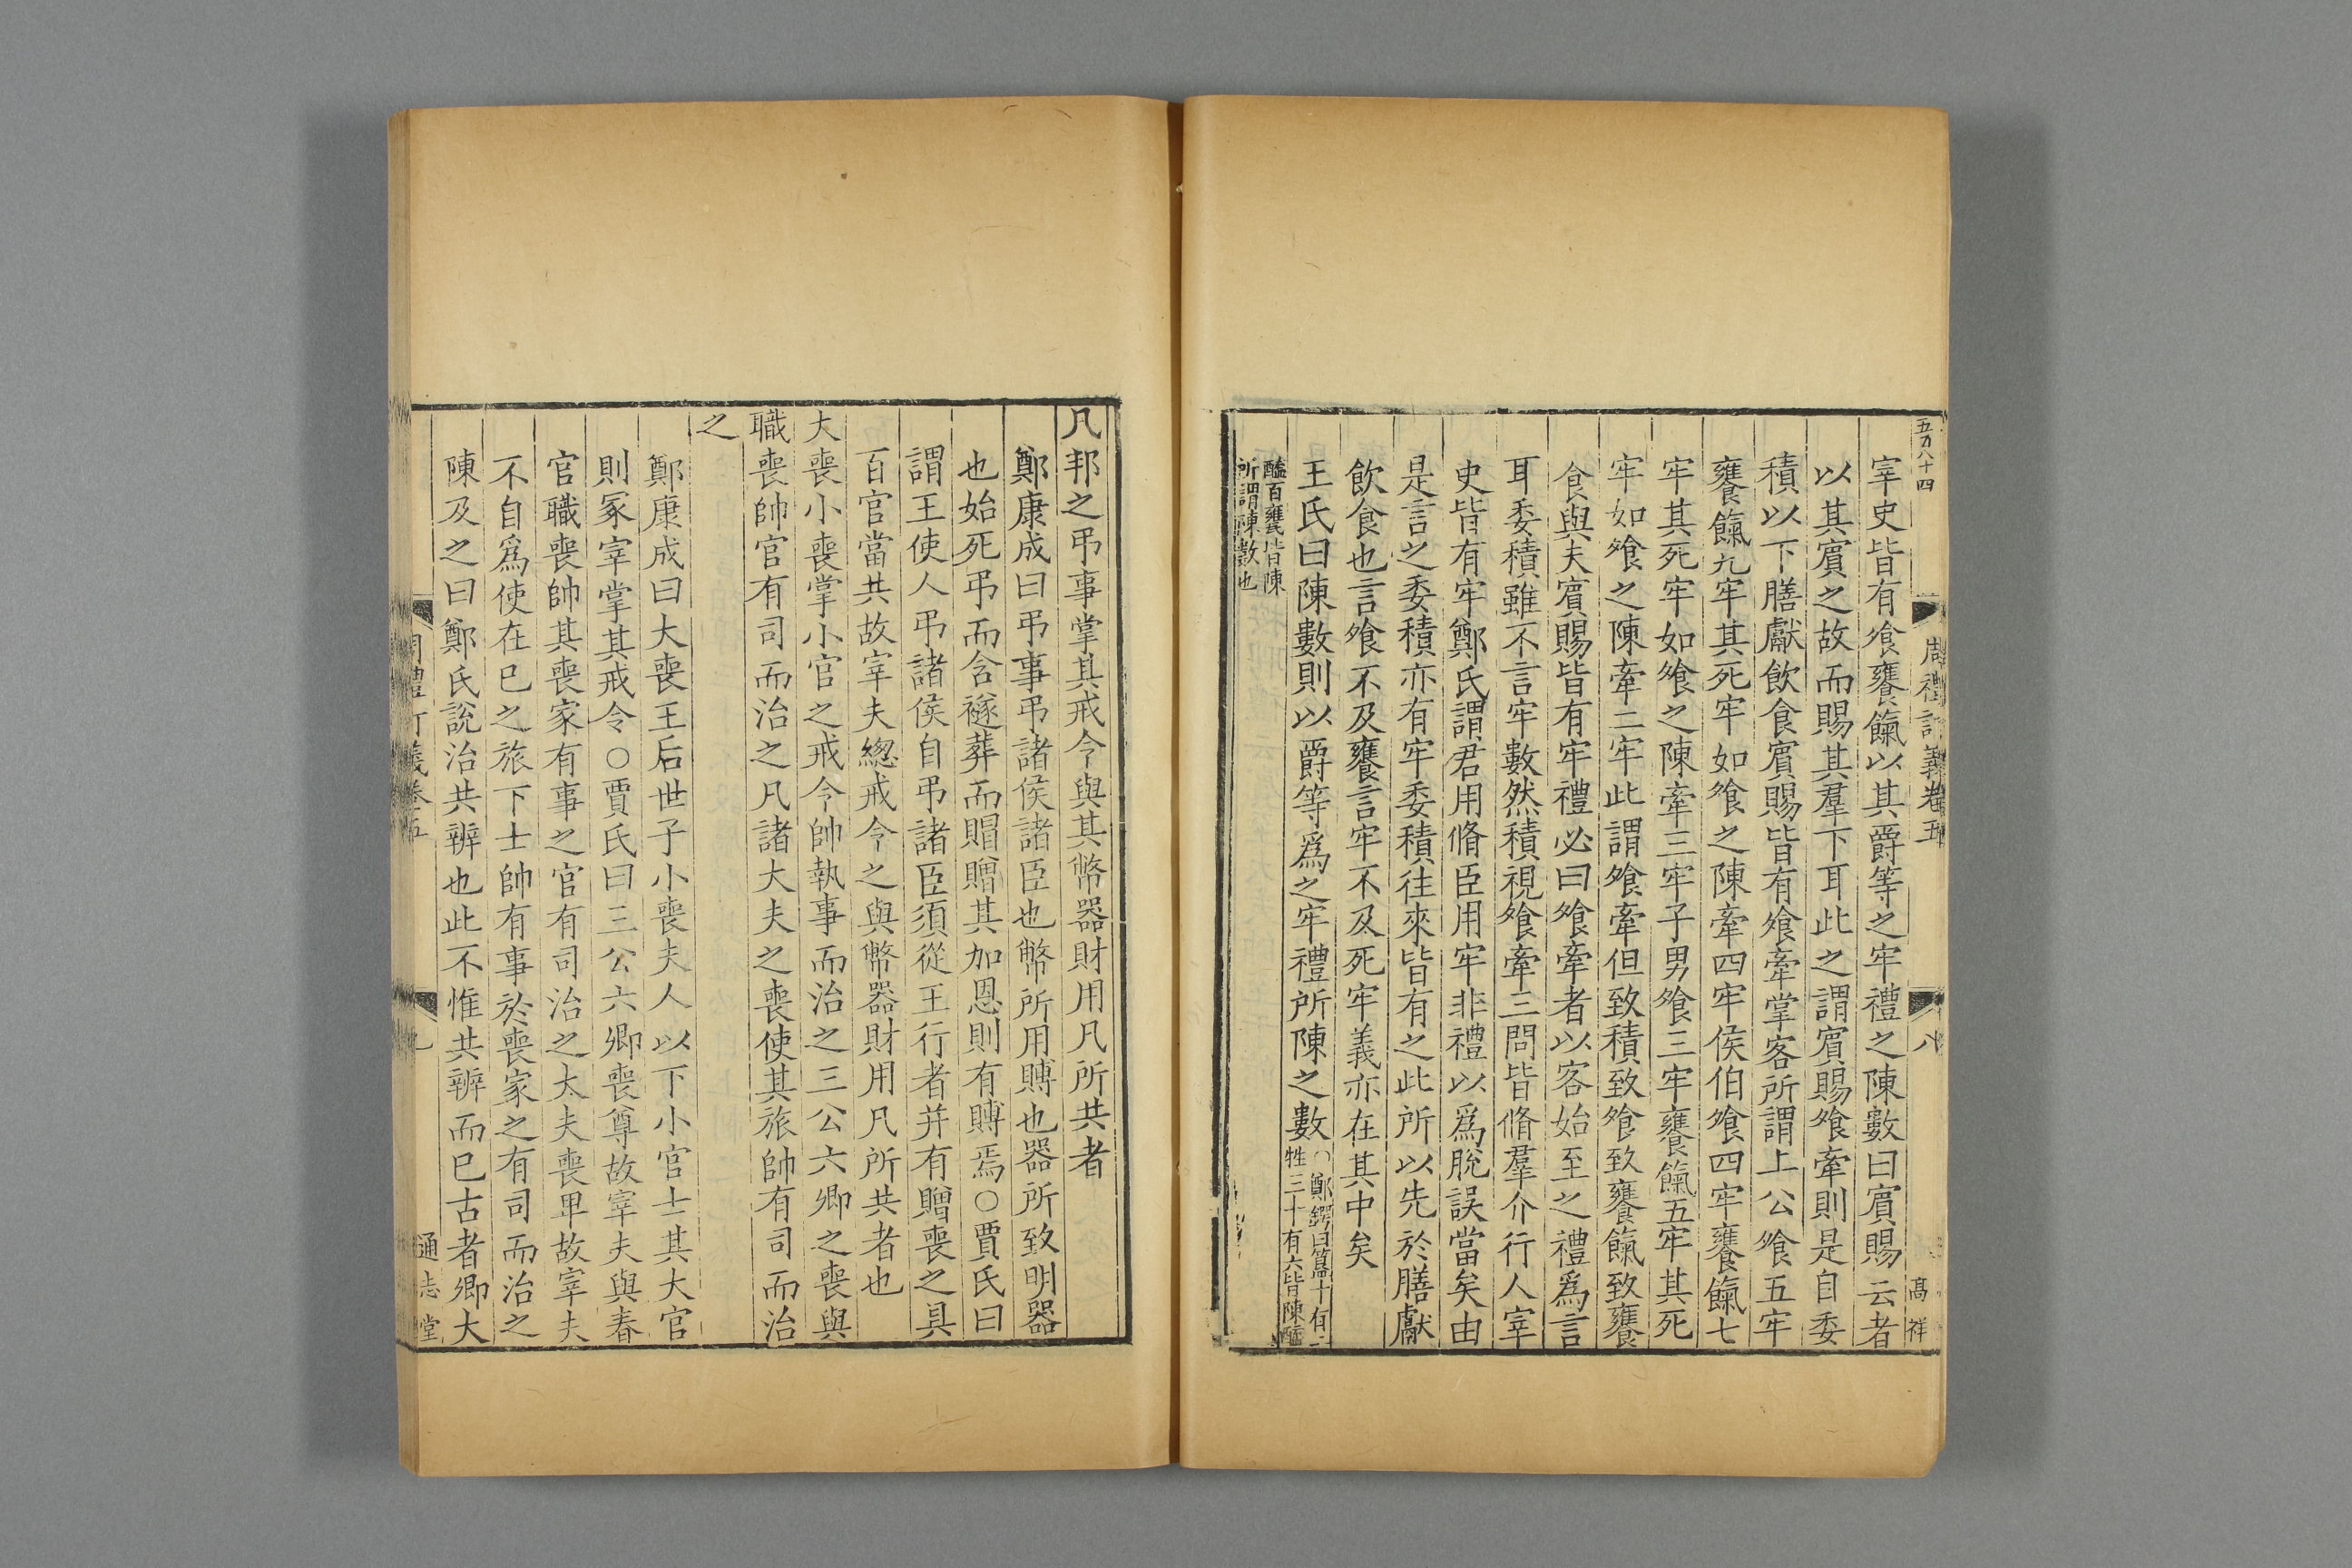 五百八十四
周禮訂義卷五
八
髙祥
宰史皆有飧饔餼以其爵等之牢禮之陳數曰賔賜云者
以其賔之故而賜其羣下耳此之謂賔賜飧牽則是自委
積以下膳獻飲食賔賜皆有飧牽掌客所謂上公飧五牢
饔餼九牢其死牢如飧之陳牽四牢侯伯飧四牢饔餼七
牢其死牢如飧之陳牽三牢子男飧三牢饔餼五牢其死
牢如飧之陳牽二牢此謂飧牽但致積致飧致饔餼致饔
食與夫賔賜皆有牢禮必曰飧牽者以客始至之禮爲言
耳委積雖不言牢數然積視飧牽三問皆脩羣介行人宰
史皆有牢鄭氏謂君用脩臣用牢非禮以爲脫誤當矣由
是言之委積亦有牢委積往來皆有之此所以先於膳獻
飲食也言飧不及饔言牢不及死牢義亦在其中矣
王氏曰陳數則以爵等爲之牢禮所陳之數
○鄭鍔曰簋十有二
牲三十有六皆陳醯
醢百甕皆陳
所謂陳數也
凡邦之弔事掌其戒令與其幣器財用凡所共者
鄭康成曰弔事弔諸侯諸臣也幣所用賻也器所致明器
也始死弔而含襚葬而賵贈其加恩則有賻焉○賈氏曰
謂王使人弔諸侯自弔諸臣須從王行者并有贈喪之具
百官當共故宰夫緫戒令之與幣器財用凡所共者也
大喪小喪掌小官之戒令帥執事而治之三公六卿之喪與
職喪帥官有司而治之凡諸大夫之喪使其旅帥有司而治
之
鄭康成曰大喪王后世子小喪夫人以下小官士其大官
則冢宰掌其戒令○賈氏曰三公六卿喪尊故宰夫與春
官職喪帥其喪家有事之官有司治之大夫喪卑故宰夫
不自爲使在已之旅下士帥有事於喪家之有司而治之
陳及之曰鄭氏說治共辨也此不惟共辨而已古者卿大
周禮訂義卷五
九
通志堂